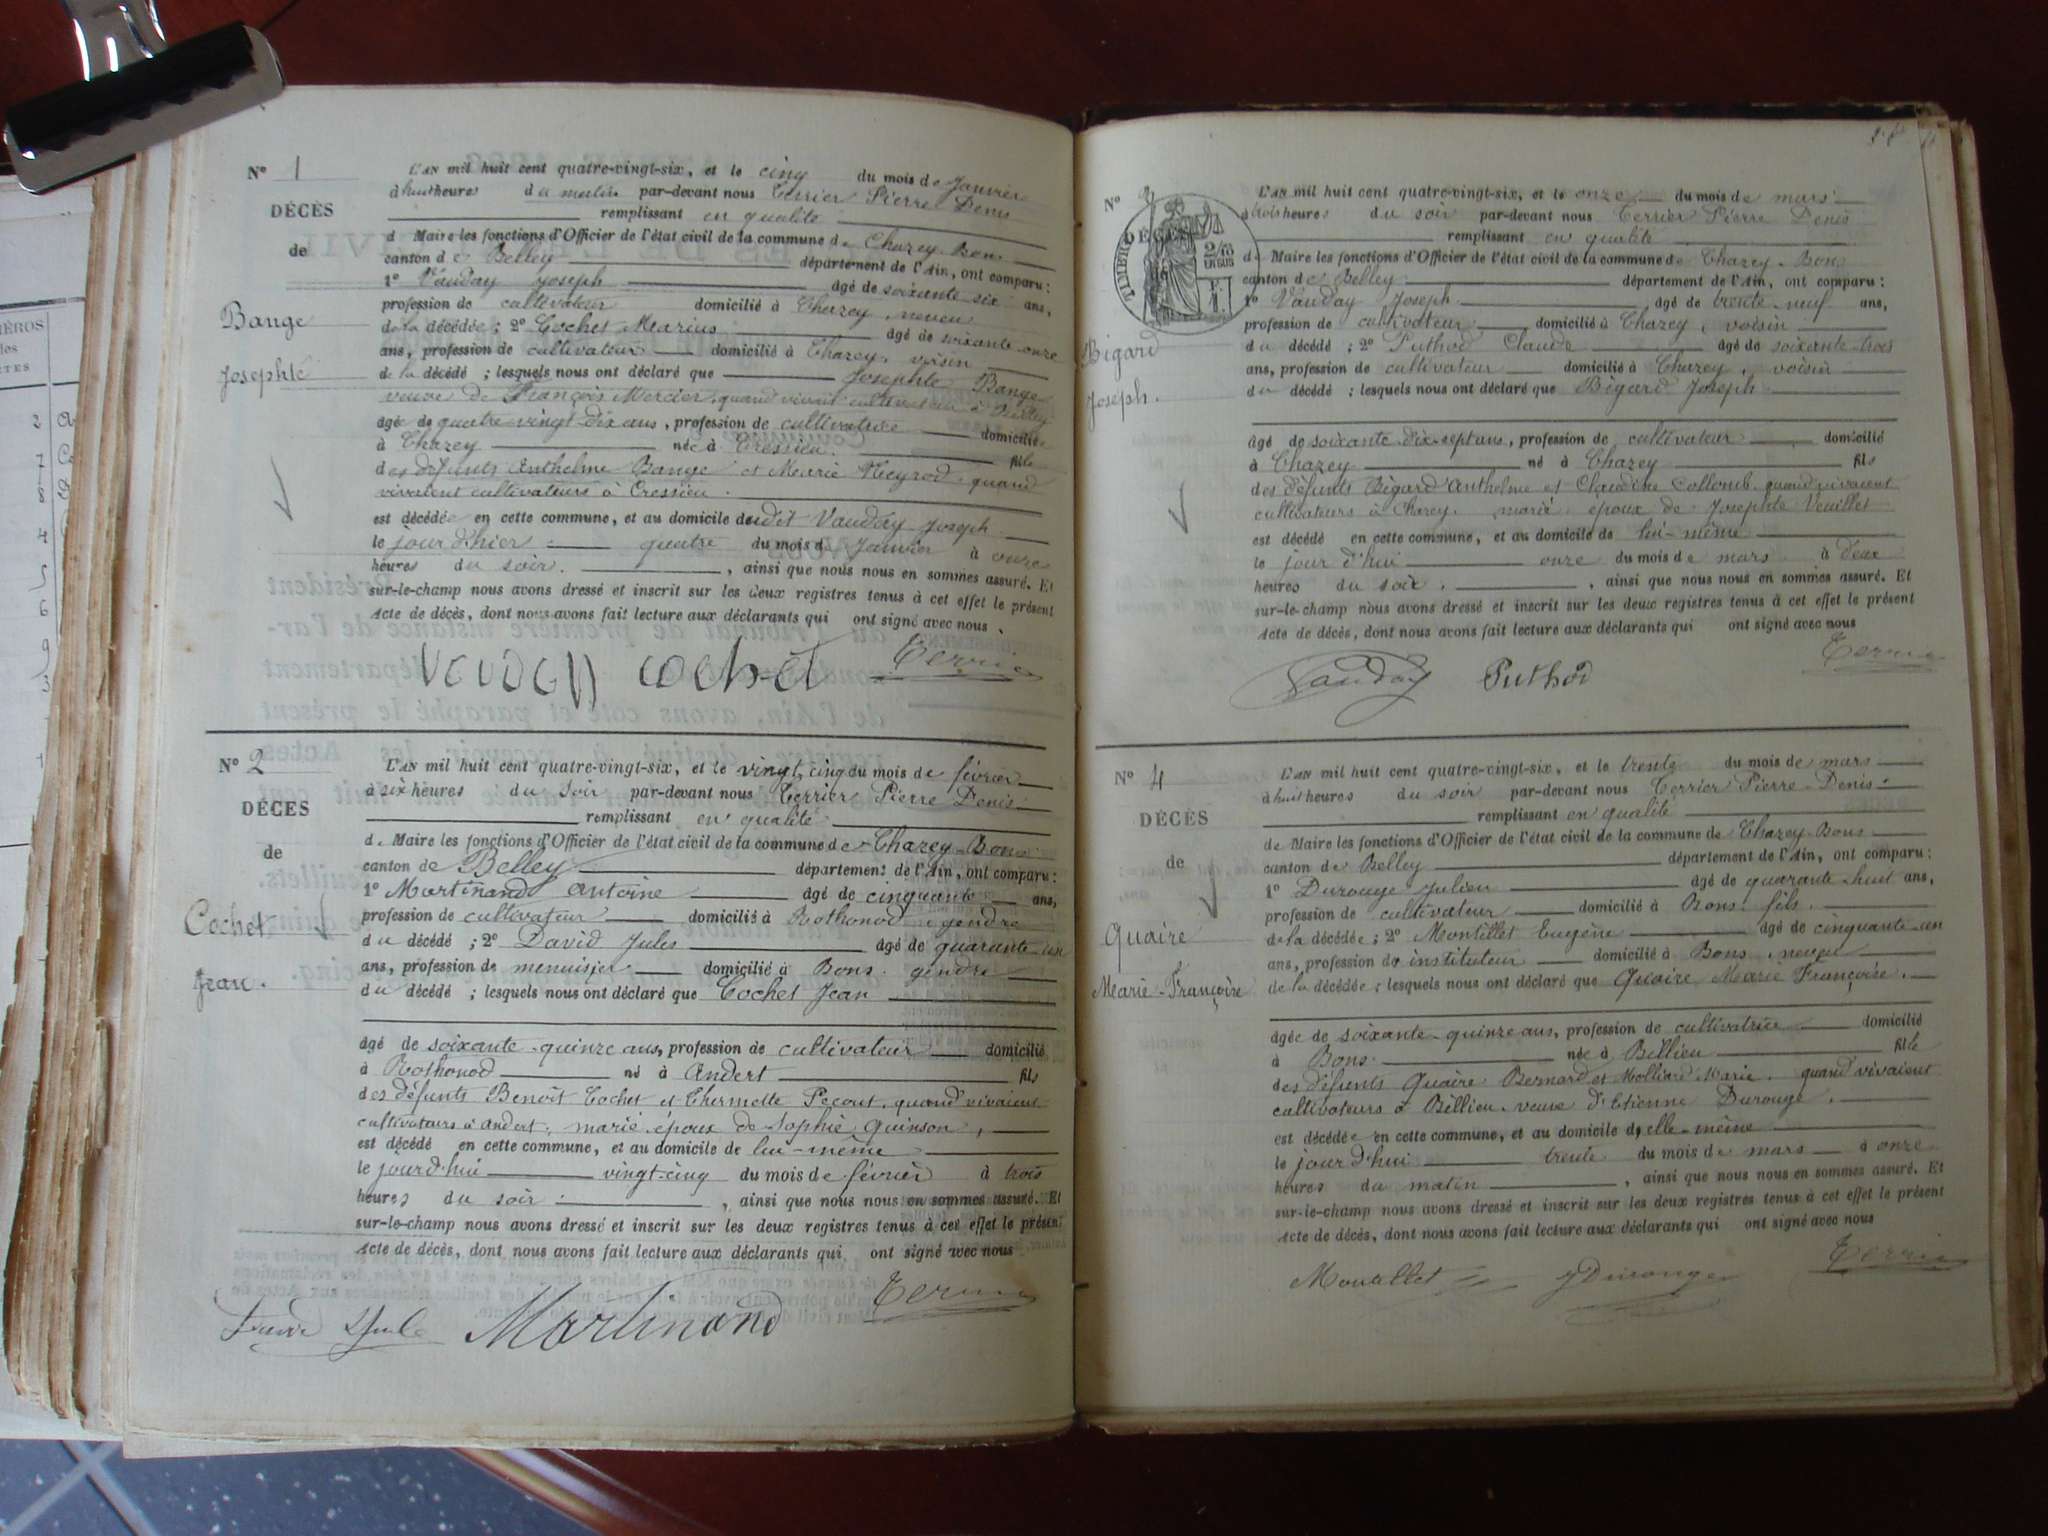 N° 1
DÉCÈS
de
Bange
Josephte
L'AN mil huit cent quatre-vingt-six, et le cinq du mois de Janvier
à huit heures du matin par-devant nous Terrier Pierre Denis
remplissant en qualité
d Maire les fonctions d'Officier de l'état civil de la commune de Chazey-Bons
canton de Belley département de l'Ain, ont comparu :
1° Vauday Joseph âgé de soixante six ans,
profession de cultivateur domicilié à Chazey, neveu
de la décédée ; 2° Cochet Marius âgé de soixante-onze
ans, profession de cultivateur domicilié à Chazey, voisin
de la décédé ; lesquels nous ont déclaré que Josephte Bange
veuve de François Mercier, quand vivait cultivateur à
âgé de quatre vingt-dix ans, profession de cultivatrice domicilié
à Chazey née à Cressieu fille
des défunts Anthelme Bange et Marie Neyrod quand
vivaient cultivateurs à Cressieu.
est décédée en cette commune, et au domicile dudit Vauday Joseph
le jour d'hier quatre du mois d Janvier à onze
heures du soir, ainsi que nous nous en sommes assuré. Et
sur-le-champ nous avons dressé et inscrit sur les deux registres tenus à cet effet le présent
Acte de décès, dont nous avons fait lecture aux déclarants qui ont signé avec nous.
Vauday Cochet Terrier
N° 2
DÉCÈS
de
Cochet
Jean.
L'AN mil huit cent quatre-vingt-six, et le vingt cinq du mois de février
à six heures du soir par-devant nous Terrier Pierre Denis
remplissant en qualité
de Maire les fonctions d'Officier de l'état civil de la commune de Chazey-Bons
canton de Belley département de l'Ain, ont comparu :
1° Martinand Antoine âgé de cinquante ans,
profession de cultivateur domicilié à Rothonod gendre
du décédé ; 2° David Jules âgé de quarante-un
ans, profession de menuisier domicilié à Bons. gendre
du décédé ; lesquels nous ont déclaré que Cochet Jean
âgé de soixante-quinze ans, profession de cultivateur domicilié
à Rothonod né à Andert fils
des défunts Benoit Cochet et Thermette Pecout, quand vivaient
cultivateurs à Andert, marié, époux de Sophie Quinson,
est décédé en cette commune, et au domicile de lui-même
le jour d'hui vingt-cinq du mois de février à trois
heures du soir, ainsi que nous nous en sommes assuré. Et
sur-le-champ nous avons dressé et inscrit sur les deux registres tenus à cet effet le présent
Acte de décès, dont nous avons fait lecture aux déclarants qui ont signé avec nous
David Jules Martinand Terrier
N°
DÉCÈS
TIMBRE
2/10
EN SUS
Bigard
Joseph.
L'AN mil huit cent quatre-vingt-six, et le onze du mois de mars
à trois heures du soir par-devant nous Terrier Pierre Denis
remplissant en qualité
de Maire les fonctions d'Officier de l'état civil de la commune de Chazey-Bons
canton de Belley département de l'Ain, ont comparu :
1° Vauday Joseph âgé de trente-neuf ans,
profession de cultivateur domicilié à Chazey, voisin
du décédé ; 2° Puthod Claude âgé de soixante-trois
ans, profession de cultivateur domicilié à Chazey, voisin
du décédé ; lesquels nous ont déclaré que Bigard Joseph
âgé de soixante-dix-sept ans, profession de cultivateur domicilié
à Chazey né à Chazey fils
des défunts Bigard Anthelme et Claudine Collomb quand vivaient
cultivateurs à Chazey. marié, époux de Josephte Veuillet
est décédé en cette commune, et au domicile de lui-même
le jour d'hui onze du mois de mars à deux
heures du soir, ainsi que nous nous en sommes assuré. Et
sur-le-champ nous avons dressé et inscrit sur les deux registres tenus à cet effet le présent
Acte de décès, dont nous avons fait lecture aux déclarants qui ont signé avec nous
Vauday Puthod Terrier
N° 4
DÉCÈS
de
Quaire
Marie-Françoise
L'AN mil huit cent quatre-vingt-six, et le trente du mois de mars
à huit heures du soir par-devant nous Terrier Pierre-Denis
remplissant en qualité
de Maire les fonctions d'Officier de l'état civil de la commune de Chazey-Bons
canton de Belley département de l'Ain, ont comparu :
1° Durouge Julien âgé de quarante-huit ans,
profession de cultivateur domicilié à Bons. fils.
de la décédée ; 2° Montillet Eugène âgé de cinquante-un
ans, profession de instituteur domicilié à Bons, neveu
de la décédée ; lesquels nous ont déclaré que Quaire Marie Françoise.
âgée de soixante-quinze ans, profession de cultivatrice domicilié
à Bons. née à Billieu fille
des défunts Quaire Bernard et Molliard Marie. quand vivaient
cultivateurs à Billieu. veuve d'Etienne Durouge.
est décédée en cette commune, et au domicile d'elle-même
le jour d'hui trente du mois de mars à onze
heures du matin, ainsi que nous nous en sommes assuré. Et
sur-le-champ nous avons dressé et inscrit sur les deux registres tenus à cet effet le présent
Acte de décès, dont nous avons fait lecture aux déclarants qui ont signé avec nous
Montillet J Durouge Terrier